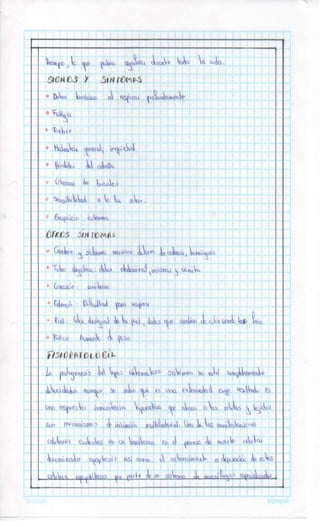 tiempo, lo que podría significar durante toda la vida.
SIGNOS Y SINTOMAS
Dolor torácico al respirar profundamente
Fatiga
Fiebre
Malestar general, inquietud
Pérdida del cabello
Úlceras bucales
Sensibilidad a la luz solar.
Erupción cutánea
OTROS SINTOMAS
Cerebro y sistema nervioso: dolores de cabeza, hormigueo
Tubo digestivo: dolor abdominal, náuseas y vómito
Corazón: arritmia
Pulmón: Dificultad para respirar
Piel: Color desigual de la piel, dedos que cambian de color cuando hace frio
Riñón: Aumento de peso
FISIOPATOLOGIA
La patogénesis del lupus eritematoso sistémico no está completamente
dilucidada aunque se sabe que es una enfermedad cuyo resultado es
una respuesta
con mecanismos de iniciación multifactorial. Una de las manifestaciones
celulares es un trastorno en el proceso de muerte celular
apoptosis así como el aclaramiento o depuración de estas
células apoptóticas por parte de un sistema de macrófagos especializados